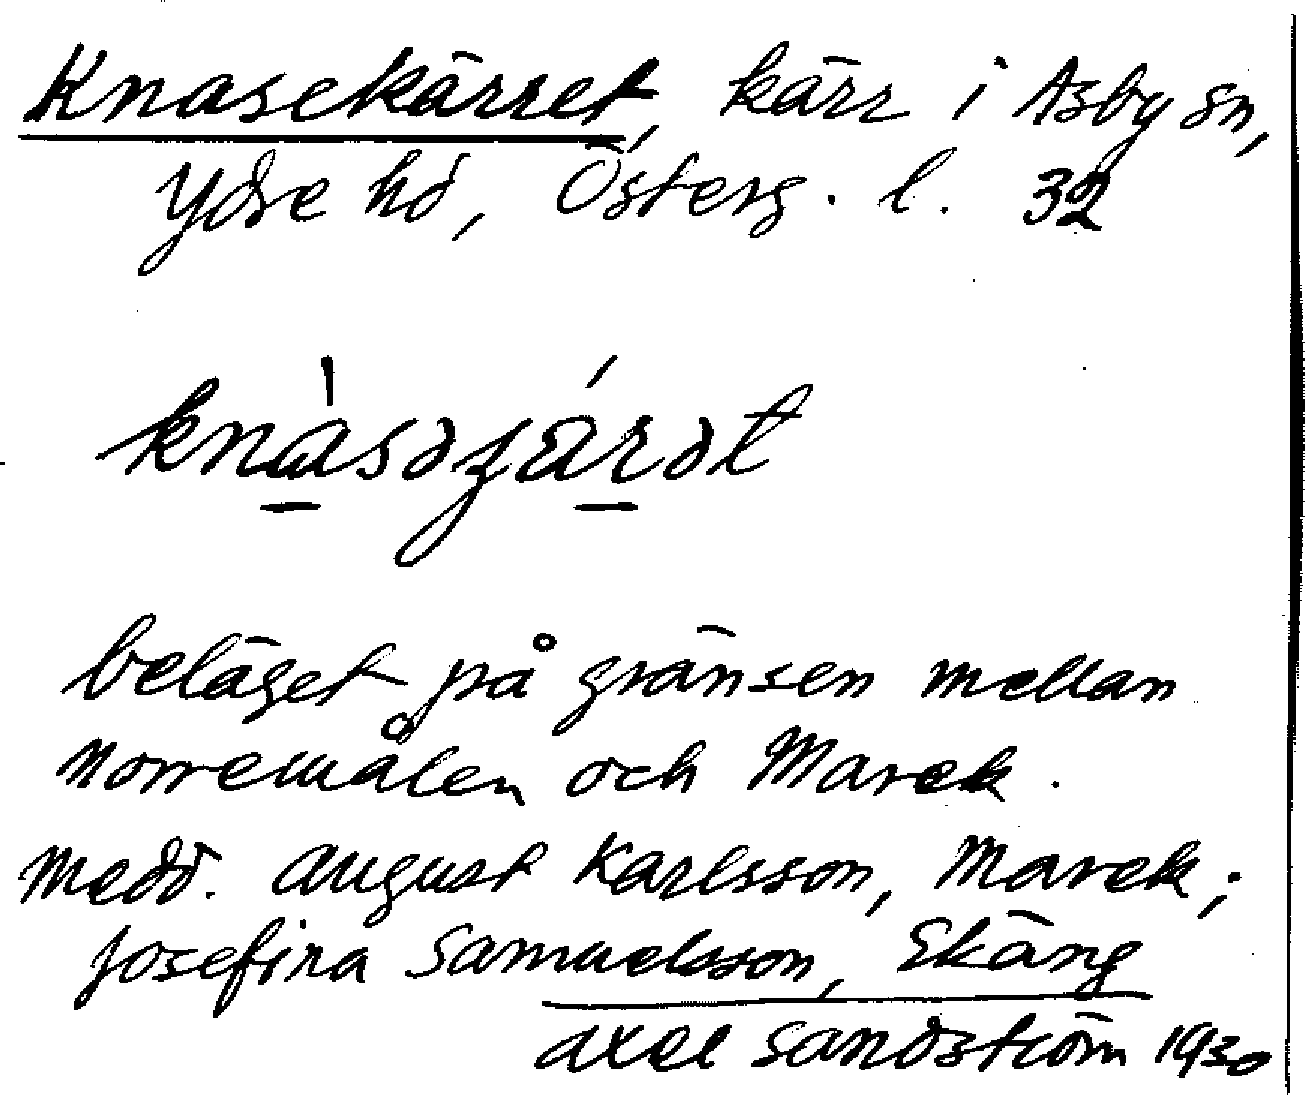 Knasekärret, kärr i Asby sn,
Ydre hd, Österg. l. 32
belägget på gränsen mellan
Norremålen och Marek.
Medd. August Karlsson, Marek;
Josefina Samuelsson, Ekäng
Axel Sandström 1930